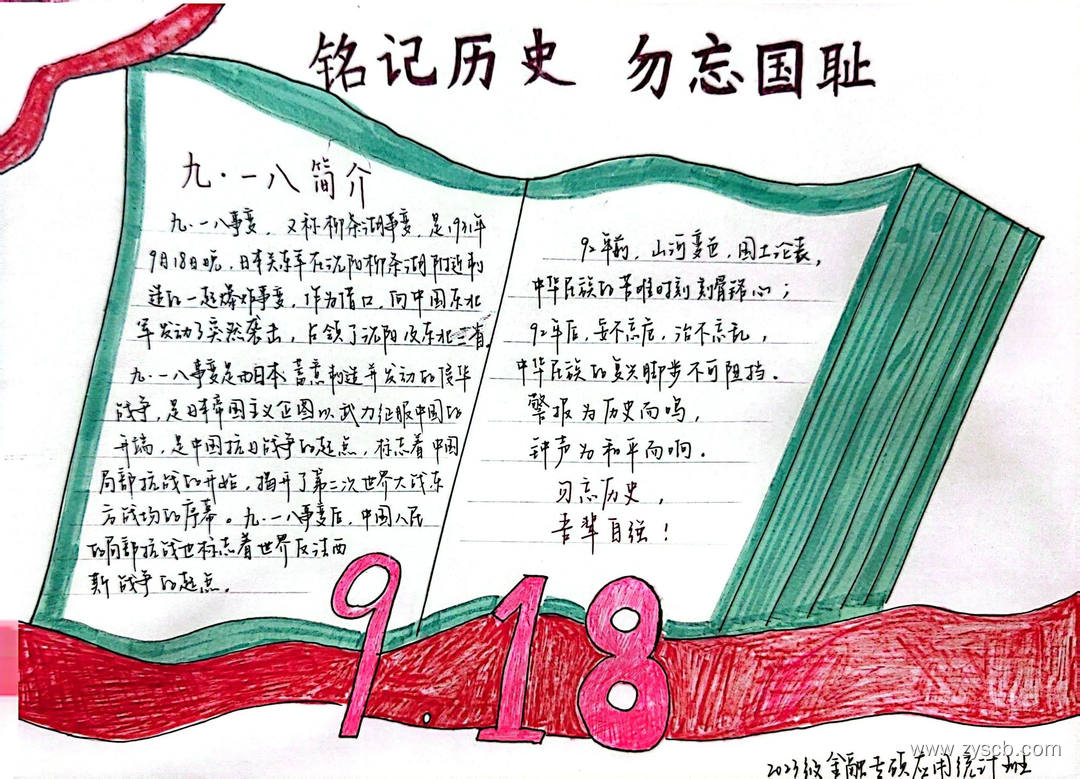 铭记历史 勿忘国耻
九·一八简介
九·一八事变，又称柳条湖事变，是1931年
9月18日晚，日本关东军在沈阳柳条湖附近制
造的一起爆炸事变，作为借口，向中国东北
军发动了突然袭击，占领了沈阳及东北三省。
九·一八事变是由日本蓄意制造并发动的侵华
战争，是日本帝国主义企图以武力征服中国的
开端，是中国抗日战争的起点，标志着中国
局部抗战的开始，揭开了第二次世界大战东
方战场的序幕。九·一八事变后，中国人民
的局部抗战也标志着世界反法西
斯战争的起点。
92年前，山河变色，国土沦丧，
中华民族的苦难时刻刻骨铭心；
92年后，安不忘危，治不忘乱，
中华民族的复兴脚步不可阻挡．
警报为历史而鸣，
钟声为和平而响．
勿忘历史，
吾辈自强！
9.18
www.zyscb.com
2023级金融专硕应用统计班